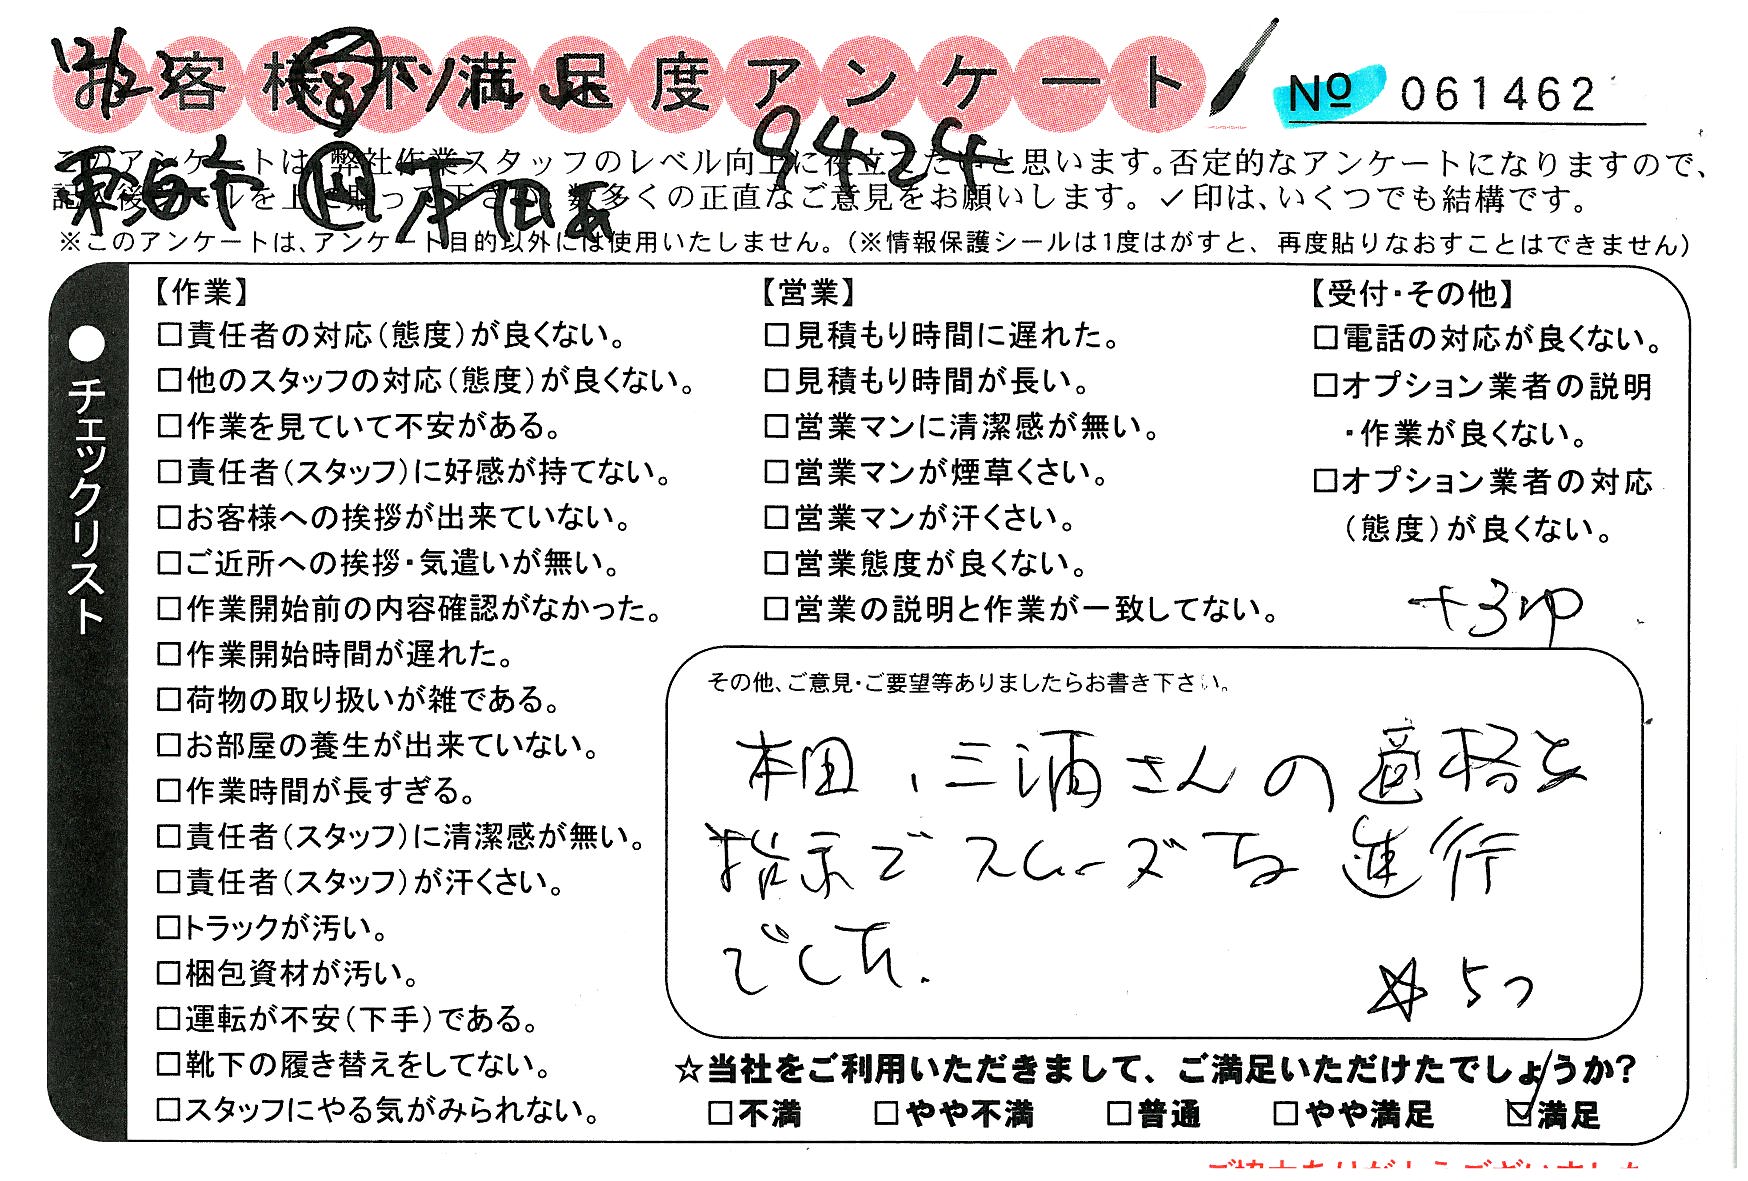 お客様不満足度アンケート
№ 061462
9424
このアンケートは、弊社作業スタッフのレベル向上に役立てたいと思います。否定的なアンケートになりますので、
記入後シールを上に貼って下さい。数多くの正直なご意見をお願いします。✓印は、いくつでも結構です。
※このアンケートは、アンケート目的以外には使用いたしません。（※情報保護シールは1度はがすと、再度貼りなおすことはできません）
●チェックリスト
【作業】
□責任者の対応（態度）が良くない。
□他のスタッフの対応（態度）が良くない。
□作業を見ていて不安がある。
□責任者（スタッフ）に好感が持てない。
□お客様への挨拶が出来ていない。
□ご近所への挨拶・気遣いが無い。
□作業開始前の内容確認がなかった。
□作業開始時間が遅れた。
□荷物の取り扱いが雑である。
□お部屋の養生が出来ていない。
□作業時間が長すぎる。
□責任者（スタッフ）に清潔感が無い。
□責任者（スタッフ）が汗くさい。
□トラックが汚い。
□梱包資材が汚い。
□運転が不安（下手）である。
□靴下の履き替えをしてない。
□スタッフにやる気がみられない。
【営業】
□見積もり時間に遅れた。
□見積もり時間が長い。
□営業マンに清潔感が無い。
□営業マンが煙草くさい。
□営業マンが汗くさい。
□営業態度が良くない。
□営業の説明と作業が一致してない。
【受付・その他】
□電話の対応が良くない。
□オプション業者の説明
・作業が良くない。
□オプション業者の対応
（態度）が良くない。
その他、ご意見・ご要望等ありましたらお書き下さい。
本田、三浦さんの適格な
指示でスムーズな進行
でした.
☆5つ
☆当社をご利用いただきまして、ご満足いただけたでしょうか?
□不満 □やや不満 □普通 □やや満足 ☑満足
ご協力ありがとうございました